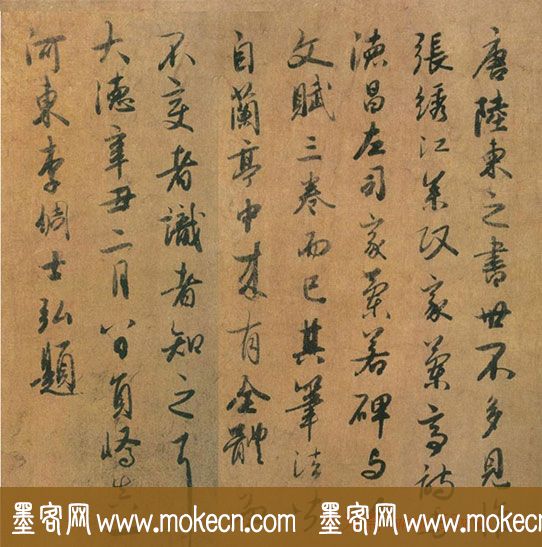 唐陸柬之書世不多見惟
張綉江參政家蘭亭詩
昌左司家蘭若碑与
文賦三卷而已其筆法
自蘭亭中来有全體
不变者識者知之耳
大德辛丑二月八日員嶠
河東李倜士弘題
墨客网 www.mokecn.com 墨客网 www.mokecn.com